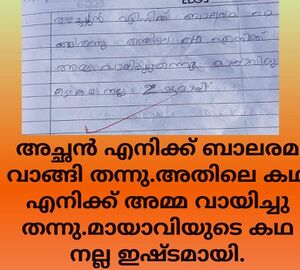 അച്ഛൻ എനിക്ക് ബാലരമ വാ
ങ്ങിതന്നു അതിലെ കഥ എനിക്ക്
അമ്മ വായിച്ചുതന്നു മായാവിയു
ടെകഥ നല്ല ഇഷ്ടമായി
അച്ഛൻ എനിക്ക് ബാലരമ
വാങ്ങി തന്നു.അതിലെ കഥ
എനിക്ക് അമ്മ വായിച്ചു
തന്നു.മായാവിയുടെ കഥ
നല്ല ഇഷ്ടമായി.